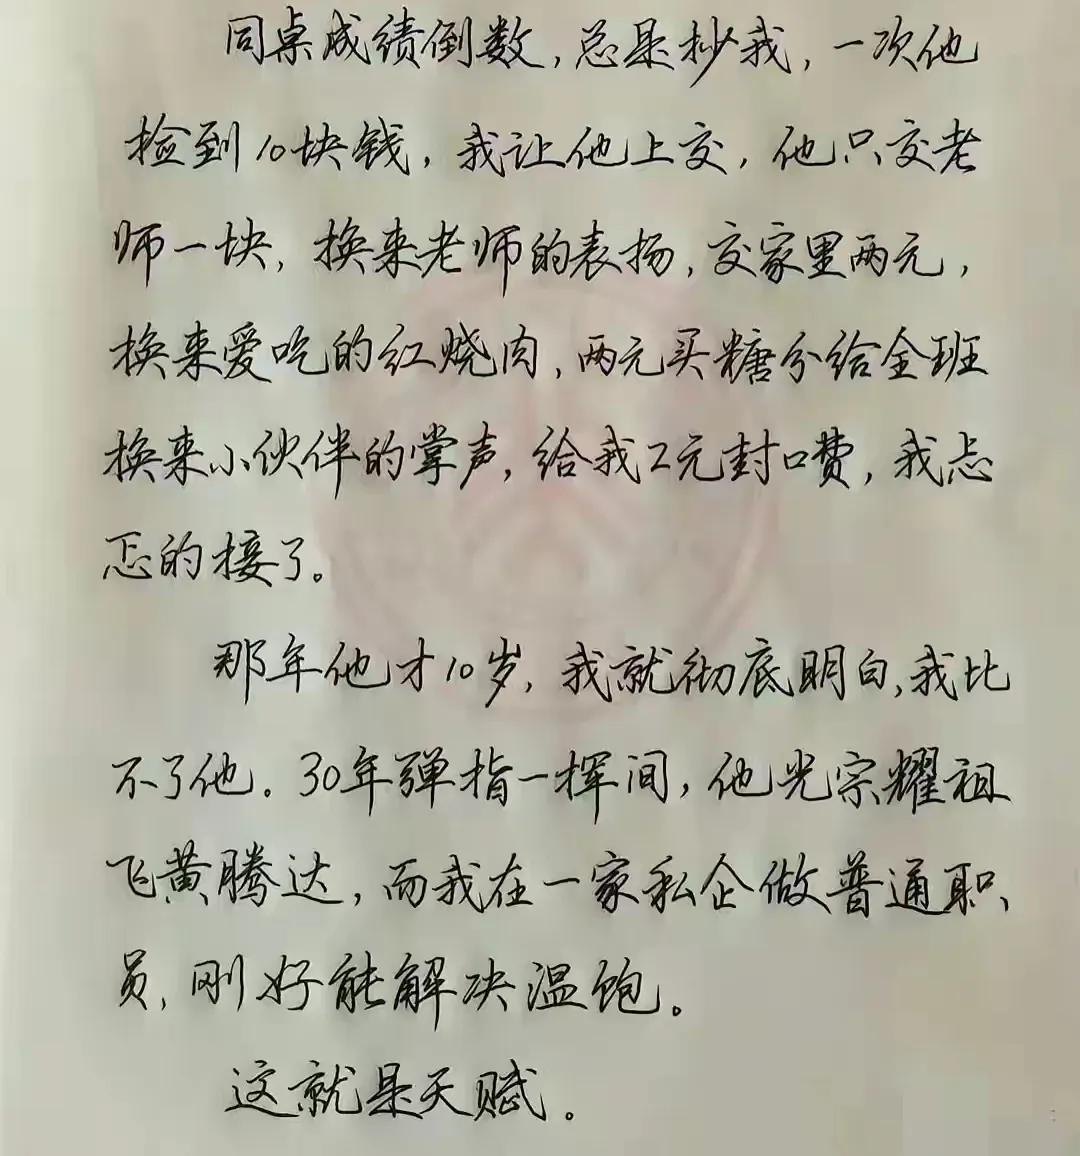 同桌成绩倒数,总是抄我,一次他
捡到10块钱,我让他上交,他只交老
师一块,换来老师的表扬,交家里两元,
换来爱吃的红烧肉,两元买糖分给全班
换来小伙伴的掌声,给我2元封口费,我忐
忑的接了。
那年他才10岁,我就彻底明白,我比
不了他。30年弹指一挥间,他光宗耀祖
飞黄腾达,而我在一家私企做普通职
员,刚好能解决温饱。
这就是天赋。